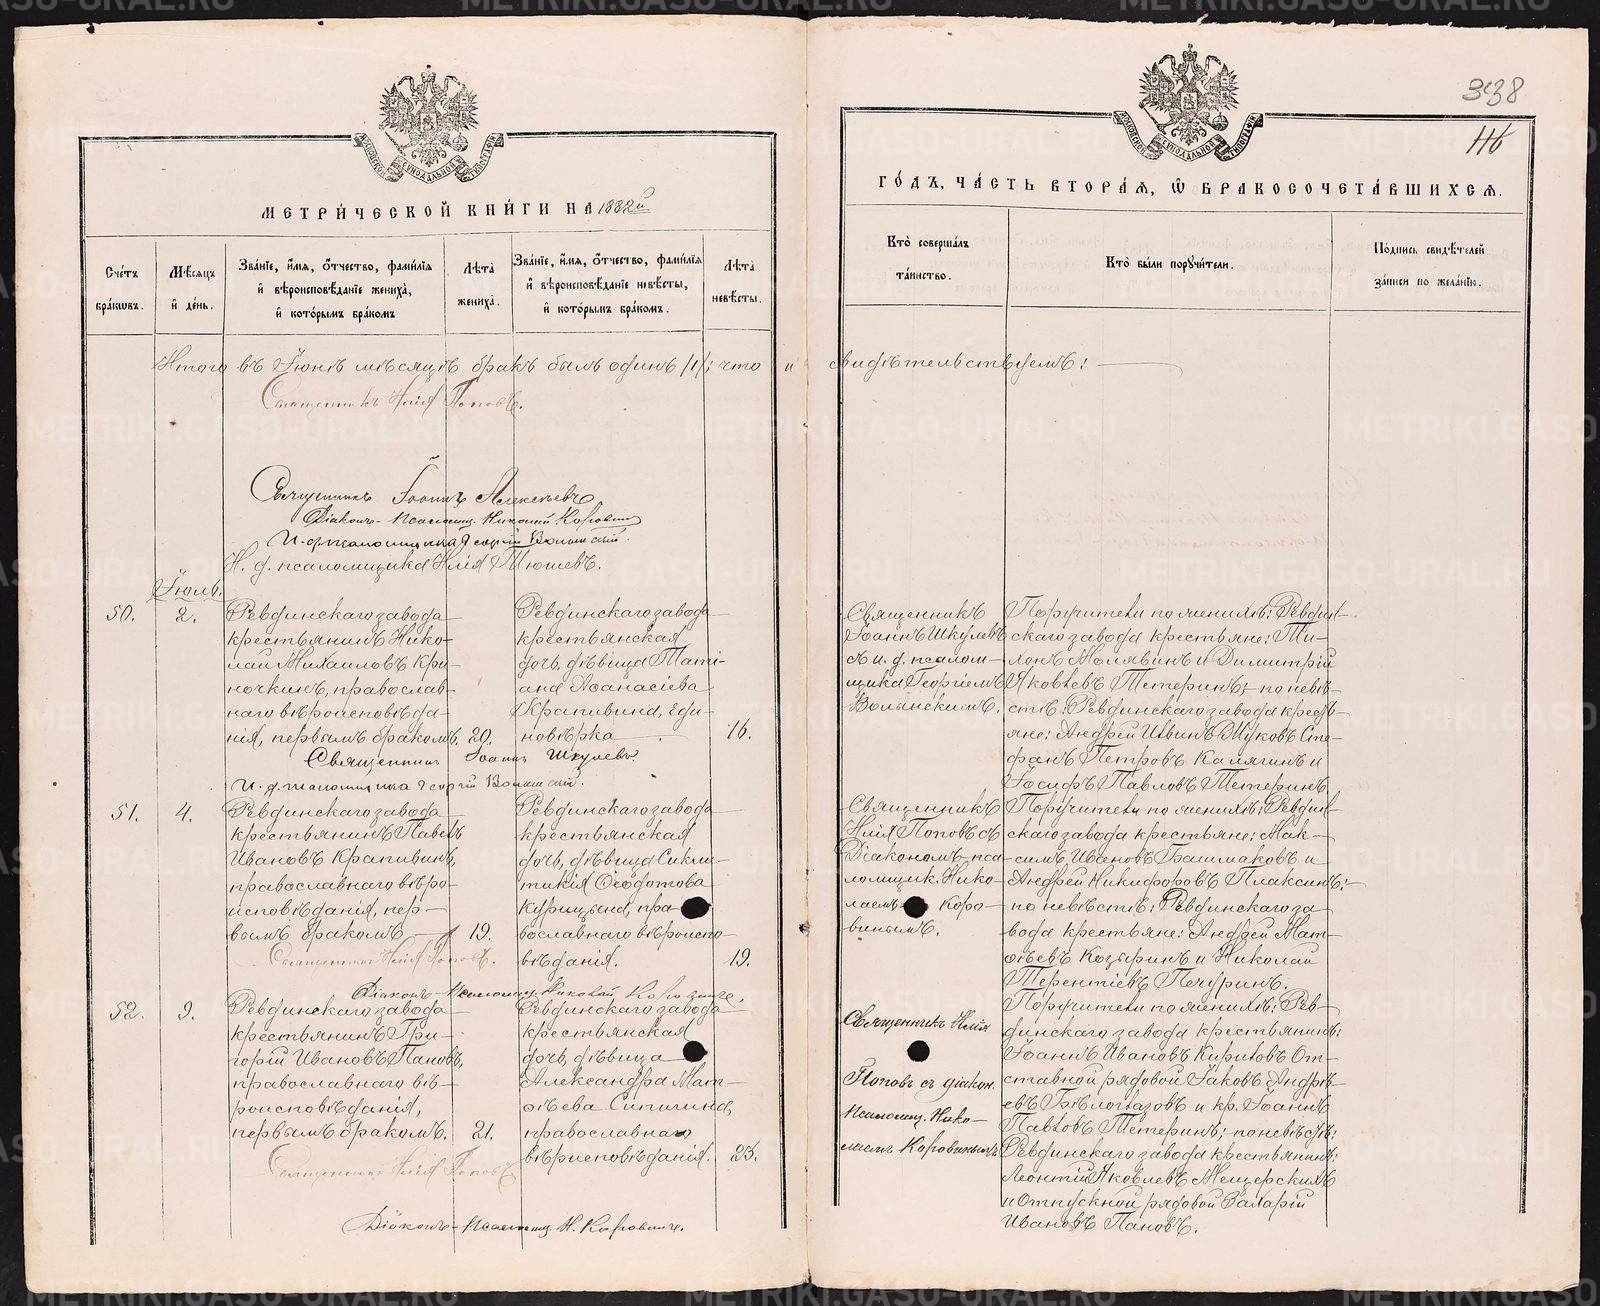 338
116
МЕТРИЧЕСКОЙ КНИГИ НА 1882й
ГОДЪ, ЧАСТЬ ВТОРАЯ, Ѡ БРАКОСОЧЕТАВШИХСЯ.
Счетъ браковъ.
Мѣсяцъ и день.
Званіе, имя, отчество, фамилія и вѣроисповѣданіе жениха, и которымъ бракомъ
Лѣта жениха.
Званіе, имя, отчество, фамилія и вѣроисповѣданіе невѣсты, и которымъ бракомъ.
Лѣта невѣсты.
Кто совершалъ таинство.
Кто были поручители.
Подпись свидѣтелей записи по желанію.
Итого въ Іюнѣ мѣсяцѣ бракъ былъ одинъ /1/; что и свидѣтельствуемъ:
Священникъ Илія Поповъ.
Священникъ Іоаннъ Алексѣевъ
Діаконъ-псаломщ. Николай Коровинъ
И. д. псаломщика Георгій Волынскій.
И. д. псаломщика Илія Тюшевъ.
Іюль.
50.
2.
Ревдинскаго завода
крестьянинъ Нико-
лай Михаиловъ Кри-
ночкинъ, православ-
наго вѣроисповѣда-
нія, первымъ бракомъ.
20.
Ревдинскаго завода
крестьянская
дочь, дѣвица Тати-
ана Аѳанасіева
Крапивина, еди-
новѣрка
16.
Священникъ Іоаннъ Шкулевъ.
И. д. псаломщика Георгій Волынскій.
Священникъ
Іоаннъ Шкулевъ
съ и. д. псалом-
щика Георгіемъ
Волынскимъ.
Поручители по женихѣ: Ревдин-
скаго завода крестьяне: Ти-
хонъ Молявинъ и Димитрій
Яковлевъ Тетеринъ; по невѣ-
стѣ: Ревдинскаго завода кресть-
яне: Андрей Ивинъ Жуковъ Сте-
фанъ Петровъ Калягинъ и
Іосифъ Павловъ Тетеринъ.
51.
4.
Ревдинскаго завода
крестьянинъ Павелъ
Ивановъ Крапивинъ,
православнаго вѣро-
исповѣданія, пер-
вымъ бракомъ
19.
Ревдинскаго завода
крестьянская
дочь, дѣвица Сикли-
тикія Ѳеодотова
Курицына, пра-
вославнаго вѣроиспо-
вѣданія.
19.
Священникъ Илія Поповъ.
Діаконъ-псаломщ. Николай Коровинъ.
Священникъ
Илія Поповъ съ
Діакономъ-пса-
ломщик. Нико-
лаемъ Коро-
винымъ.
Поручители по женихѣ: Ревдин-
скаго завода крестьяне: Мак-
симъ Ивановъ Башмаковъ и
Андрей Никифоровъ Плаксинъ;
по невѣстѣ: Ревдинскаго за-
вода крестьяне: Андрей Мат-
ѳѣевъ Козыринъ и Николай
Терентіевъ Печуринъ.
52.
9.
Ревдинскаго завода
крестьянинъ Гри-
горій Ивановъ Пановъ,
православнаго вѣ-
роисповѣданія,
первымъ бракомъ.
21.
Ревдинскаго завода
крестьянская
дочь, дѣвица
Александра Мат-
ѳѣева Сипигина,
православнаго
вѣроисповѣданія.
23.
Священникъ Илія Поповъ
Діаконъ-псаломщ. Н. Коровинъ.
Священникъ Илія
Поповъ съ діакон.
псаломщ. Нико-
лаемъ Коровинымъ
Поручители по женихѣ: Рев-
динскаго завода крестьянинъ:
Іоаннъ Ивановъ Кириловъ От-
ставной рядовой Іаковъ Андрѣ-
евъ Бѣлоглазовъ и кр. Іоаннъ
Павловъ Тетеринъ; по невѣстѣ:
Ревдинскаго завода крестьянинъ:
Леонтій Яковлевъ Мещерскихъ
и Отпускной рядовой Захарій
Ивановъ Пановъ.